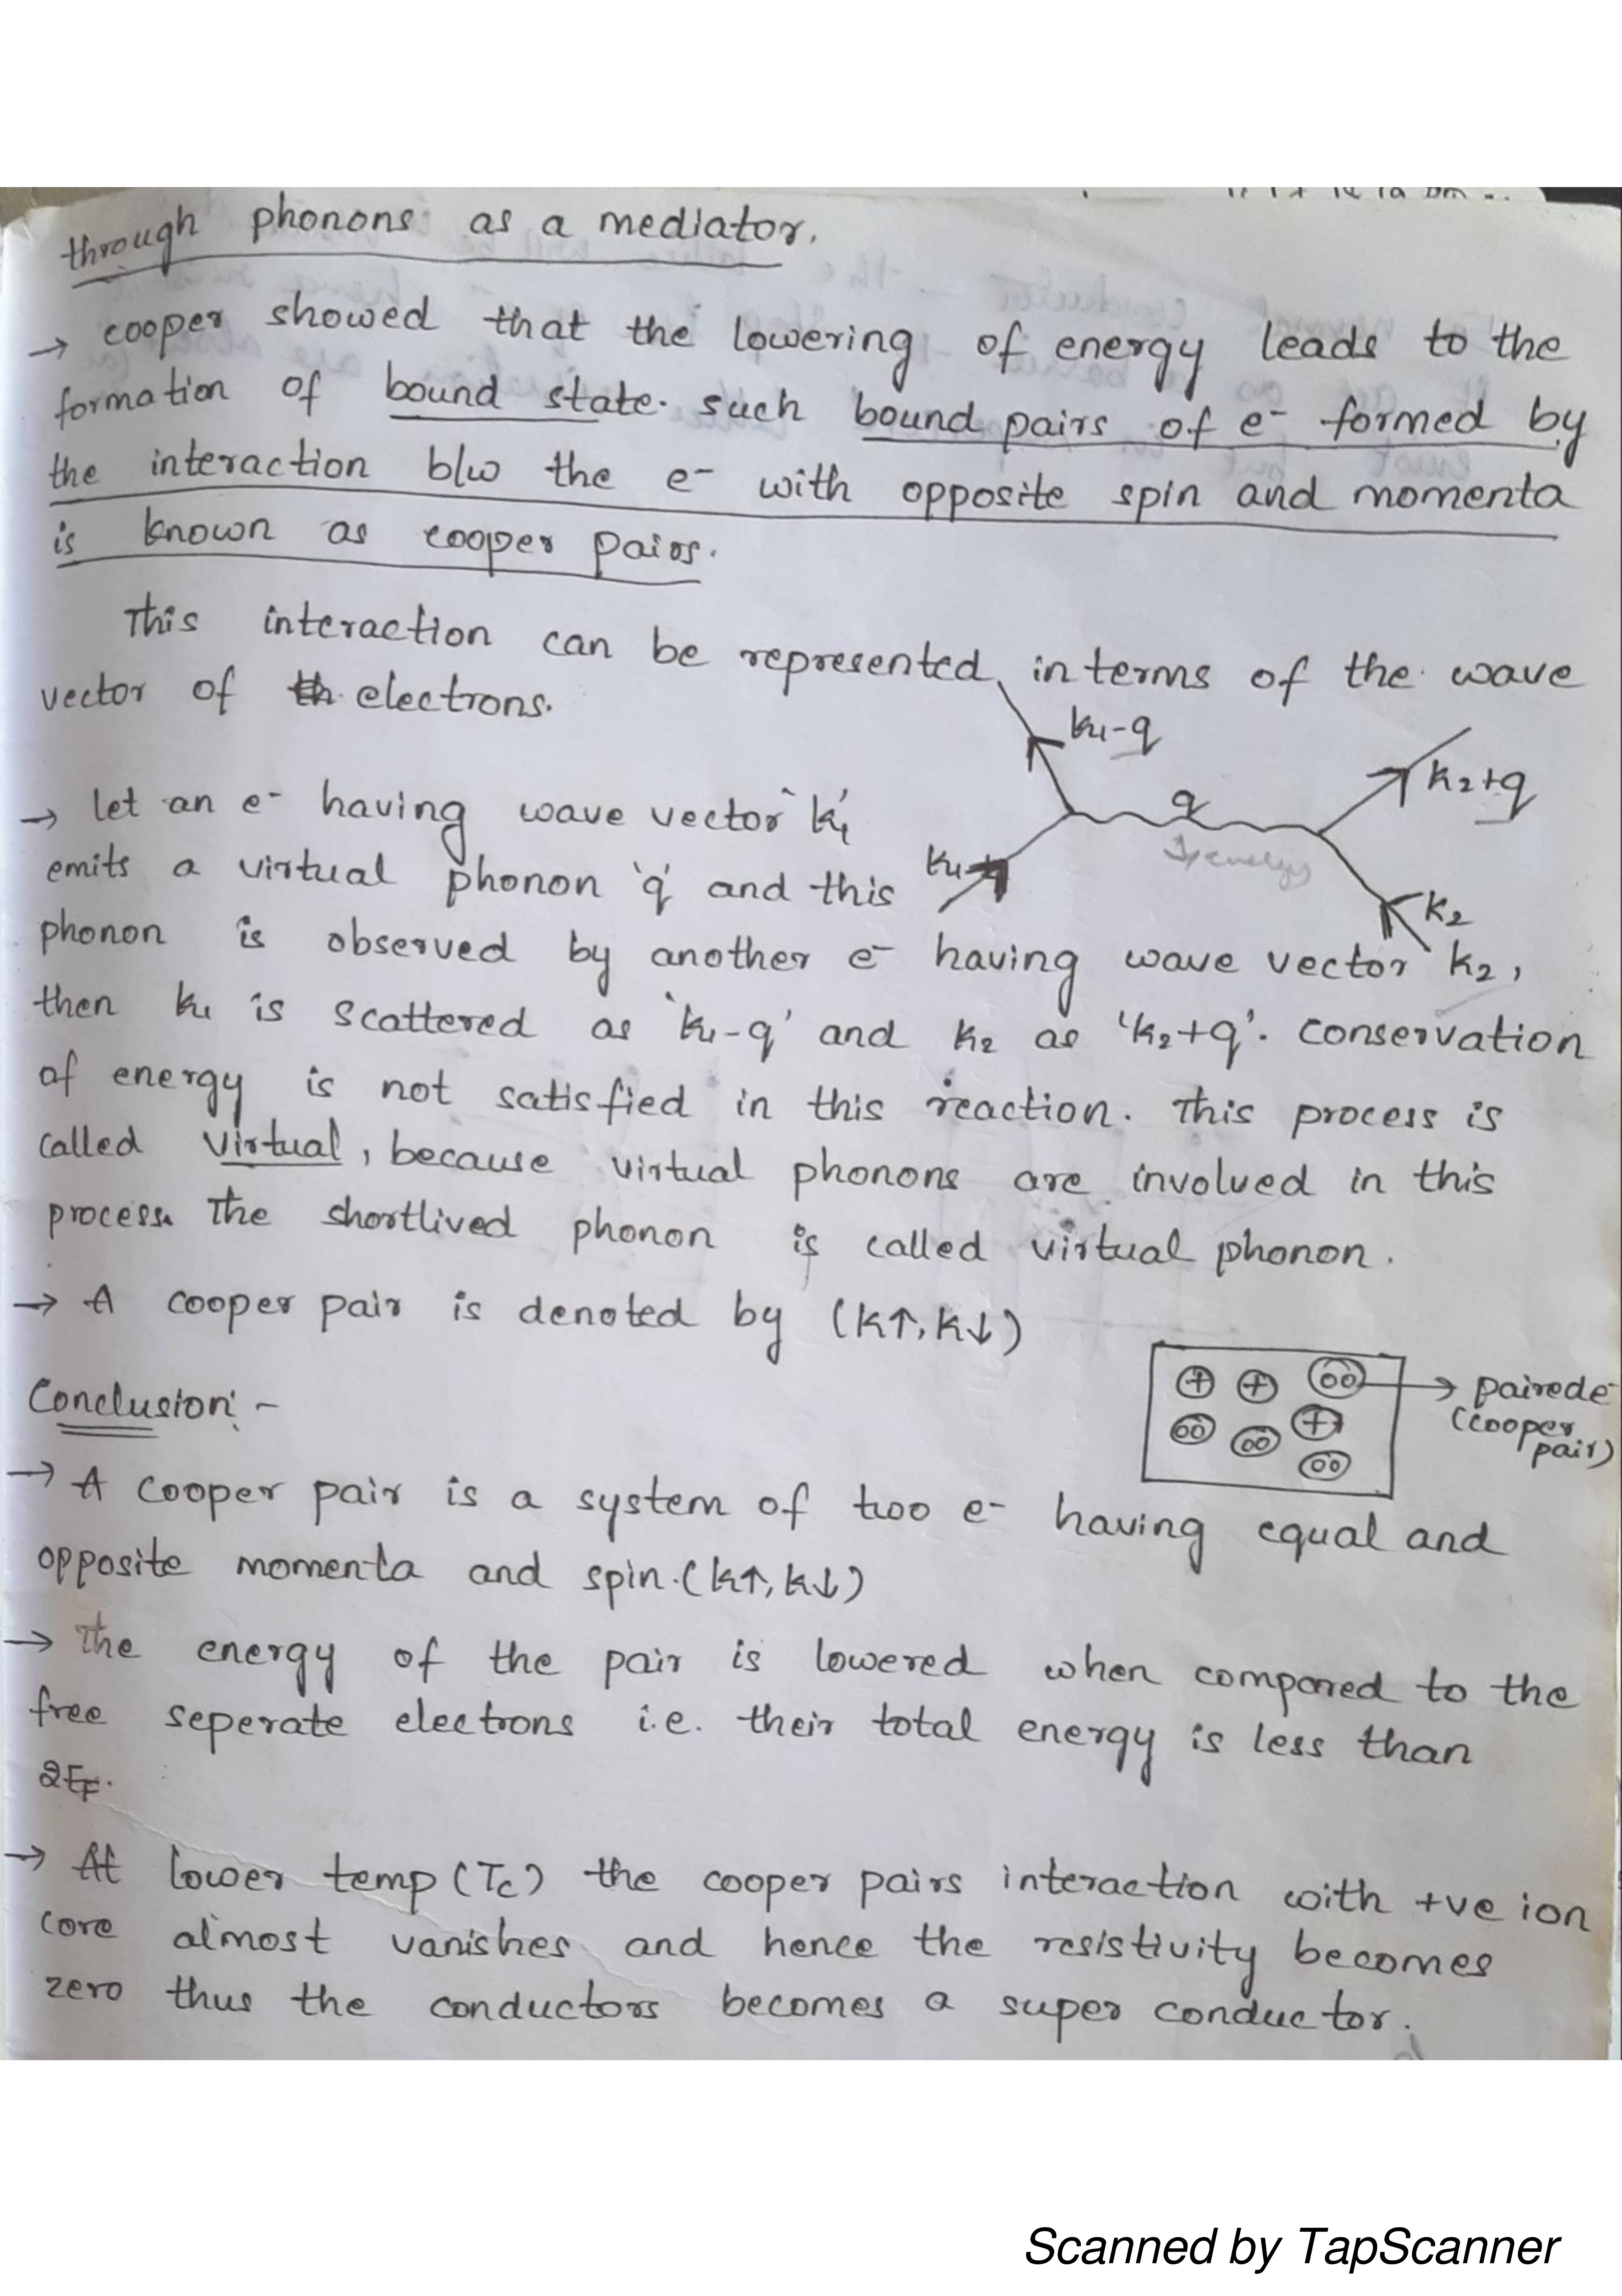 through phonons as a mediator.
→ cooper showed that the lowering of energy leads to the
formation of bound state. such bound pairs of e⁻ formed by
the interaction b/w the e⁻ with opposite spin and momenta
is known as cooper pairs.
This interaction can be represented in terms of the wave
vector of electrons.
k₁-q
k₂+q
q
k₁
k₂
→ let an e⁻ having wave vector 'k₁'
emits a virtual phonon 'q' and this
phonon is observed by another e⁻ having wave vector k₂,
then k₁ is scattered as 'k₁-q' and k₂ as 'k₂+q'. conservation
of energy is not satisfied in this reaction. This process is
called virtual, because virtual phonons are involved in this
process. The shortlived phonon is called virtual phonon.
→ A cooper pair is denoted by (k↑, k↓)
paired e⁻
(cooper
pair)
Conclusion:-
→ A cooper pair is a system of two e⁻ having equal and
opposite momenta and spin. (k↑, k↓)
→ The energy of the pair is lowered when compared to the
free seperate electrons i.e. their total energy is less than
2E_F.
→ At lower temp (Tc) the cooper pairs interaction with +ve ion
core almost vanishes and hence the resistivity becomes
zero thus the conductors becomes a super conductor.
Scanned by TapScanner